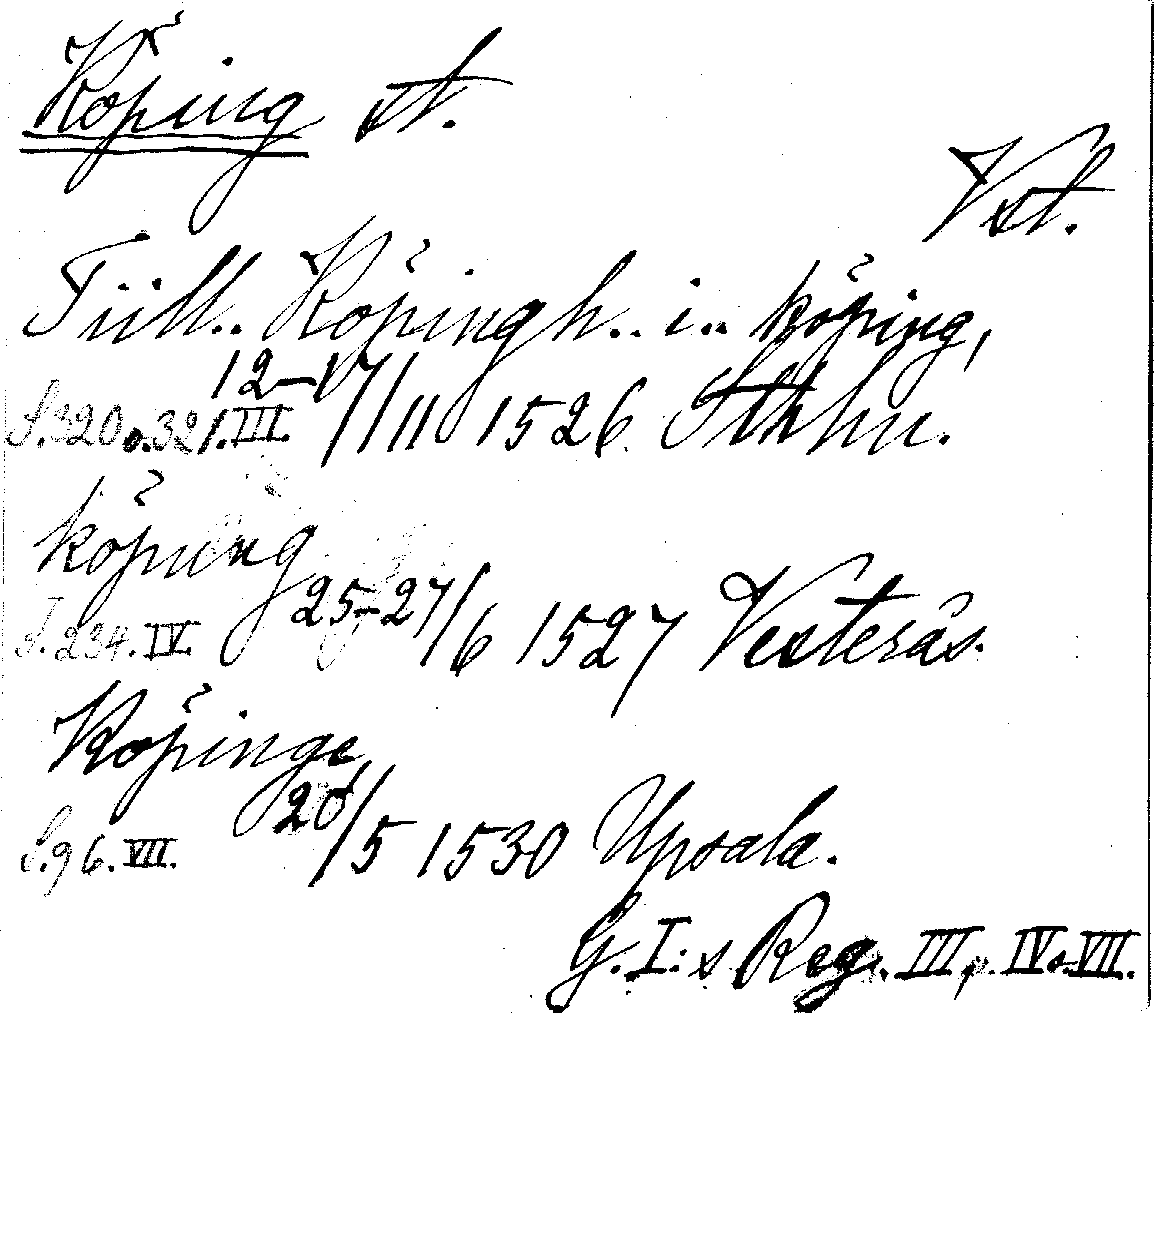 Köping st.
Vstl.
Tiill.. Köpingh.. i.. köping,
S. 320 o. 321. III. 12–17/11 1526. Sthlm.
köping
S. 234. IV. 25–27/6 1527 Vesterås.
Köpinge
S. 96. VII. 20/5 1530 Upsala.
G. I:s Reg. III, IV o. VII.